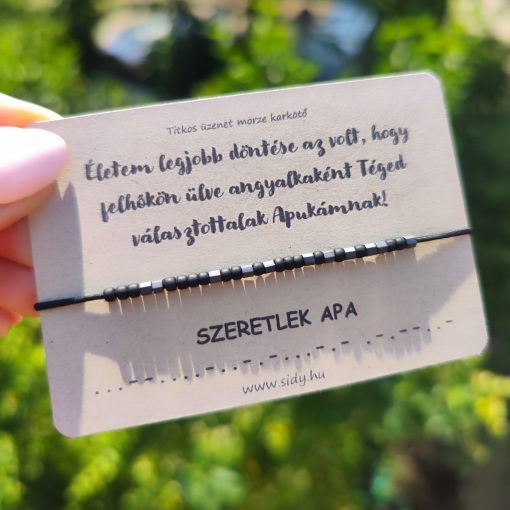 Titkos üzenet morze karkötő
Életem legjobb döntése az volt, hogy
felhőkön ülve angyalkaként Téged
választottalak Apukámnak!
SZERETLEK APA
...--.. . .-. . - .-.. . -.- .- .--. .-
www.sidy.hu